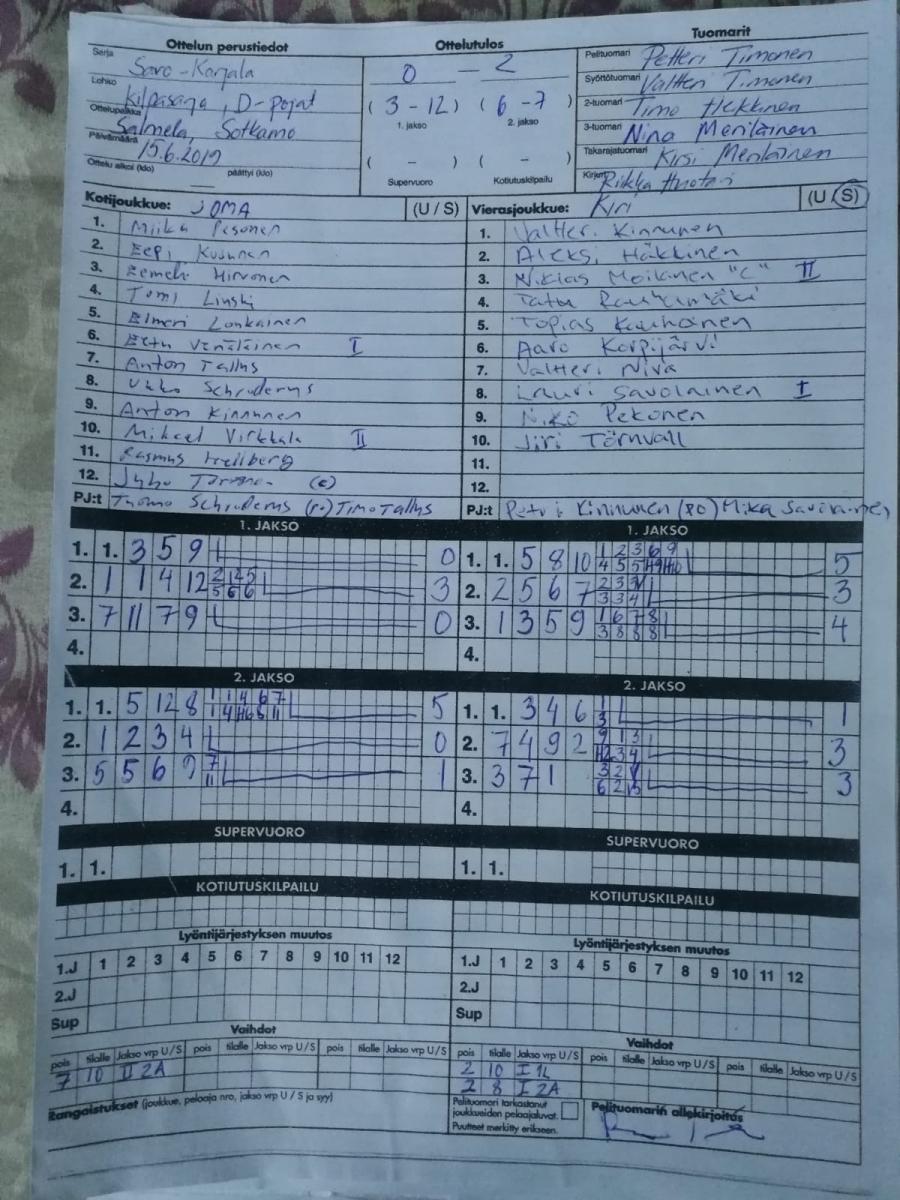 Ottelun perustiedot
Sarja Savo-Karjala
Lohko Kilpasarja, D-pojat
Ottelupaikka Salmela, Sotkamo
Päivämäärä 15.6.2019
Ottelu alkoi (klo) päättyi (klo)
Ottelutulos
0 - 2
(3 - 12) (6 - 7)
1. jakso 2. jakso
( - ) ( - )
Supervuoro Kotiutuskilpailu
Tuomarit
Pelituomari Petteri Timonen
Syöttötuomari Valtteri Timonen
2-tuomari Timo Heikkinen
3-tuomari Nina Meriläinen
Takarajatuomari Kirsi Meriläinen
Kirjuri Riikka Huotari
Kotijoukkue: JOMA (U / S)
1. Miika Pesonen
2. Eepi Kusunen
3. Eemeli Hirvonen
4. Tomi Linski
5. Elmeri Lonkainen
6. Eetu Venäläinen I
7. Anton Tallus
8. Ukko Schroderus
9. Anton Kinnunen
10. Mikael Virkkala II
11. Rasmus Hellberg
12. Juho (c)
PJ:t Tuomo Schroderus (PO) Timo Tallus
Vierasjoukkue: Kiri (U / S)
1. Valtteri Kinnunen
2. Aleksi Häkkinen
3. Niklas Moilanen "C" II
4. Tatu Rauhamäki
5. Topias Kauhanen
6. Aaro Korpijärvi
7. Valtteri Niva
8. Lauri Savolainen I
9. Niko Pekonen
10. Jiri Törnvall
11.
12.
PJ:t Petri Kinnunen (PO) Mika Savolainen
1. JAKSO
1. 1. 3 5 9 0
2. 1 1 4 12 2 2 5 5 6 6 3
3. 7 11 7 9 0
4.
1. JAKSO
1. 1. 5 8 10 1 2 3 6 9 5
2. 2 5 6 7 3
3. 1 3 5 9 1 6 7 8 3 8 8 8 4
4.
2. JAKSO
1. 1. 5 12 8 1 1 4 6 7 5
2. 1 2 3 4 0
3. 5 5 6 9 7 11 1
4.
2. JAKSO
1. 1. 3 4 6 1 3 1
2. 7 4 9 2 9 1 3 3
3. 3 7 1 3
4.
SUPERVUORO
1. 1.
SUPERVUORO
1. 1.
KOTIUTUSKILPAILU
KOTIUTUSKILPAILU
Lyöntijärjestyksen muutos
1.J 1 2 3 4 5 6 7 8 9 10 11 12
2.J
Sup
Lyöntijärjestyksen muutos
1.J 1 2 3 4 5 6 7 8 9 10 11 12
2.J
Sup
Vaihdot
pois tilalle Jakso vrp U/S pois tilalle Jakso vrp U/S pois tilalle Jakso vrp U/S
7 10 II 2A
Vaihdot
pois tilalle Jakso vrp U/S pois tilalle Jakso vrp U/S pois tilalle Jakso vrp U/S
2 10 I 1L
2 8 I 2A
Rangaistukset (joukkue, pelaaja nro, jakso vrp U / S ja syy)
Pelituomari tarkastanut
joukkueiden pelaajaluvat.
Puutteet merkitty erikseen.
Pelituomarin allekirjoitus